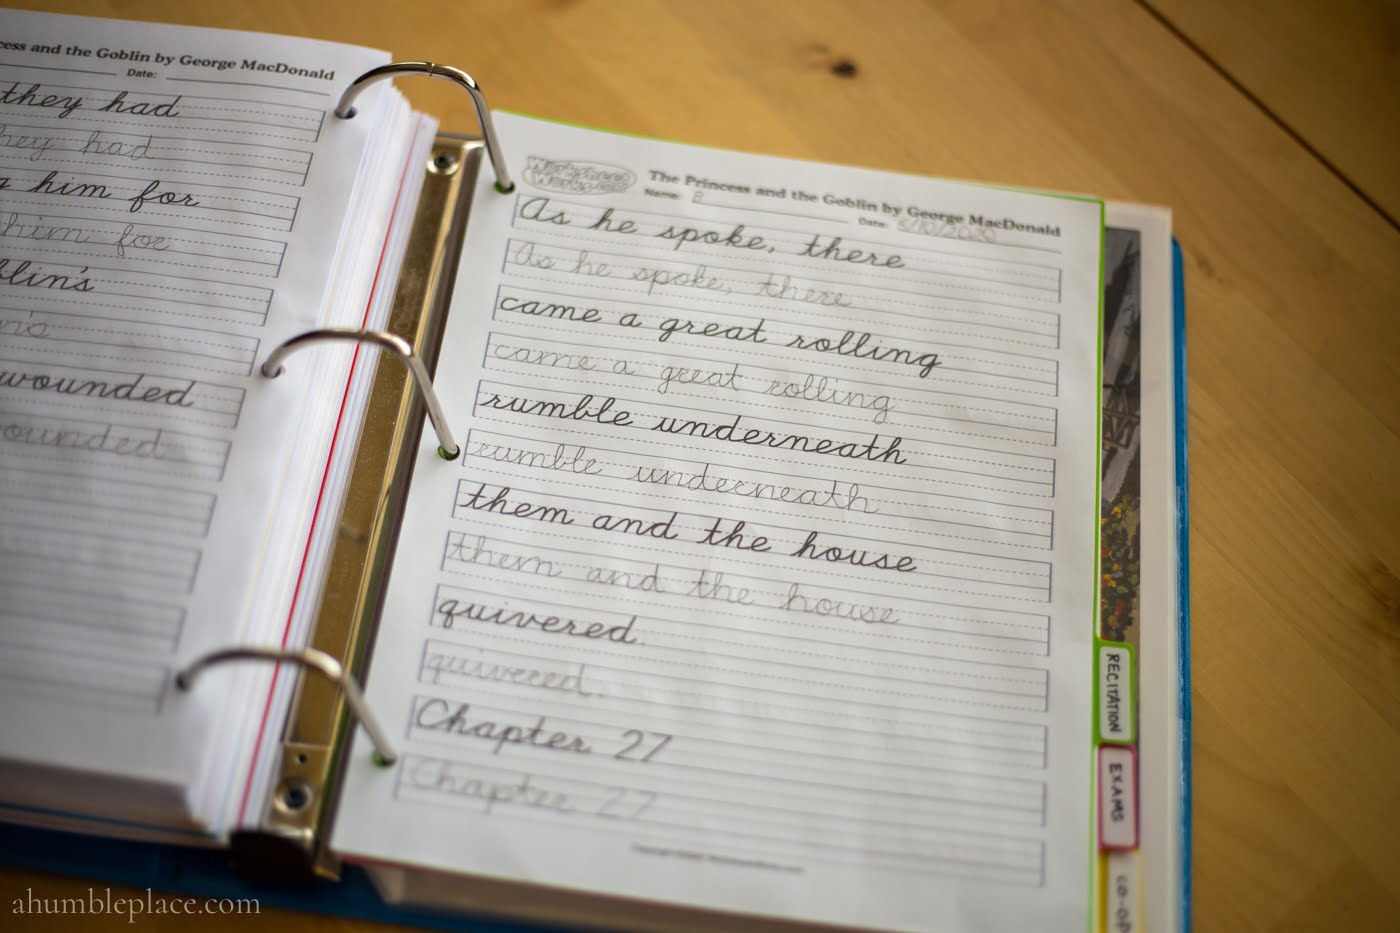 cess and the Goblin by George MacDonald
Date:
they had
they had
him for
him for
blin's
wounded
wounded
Worksheet
Works
The Princess and the Goblin by George MacDonald
Name:
Date: 5/10/2020
As he spoke, there
As he spoke, there
came a great rolling
came a great rolling
rumble underneath
rumble underneath
them and the house
them and the house
quivered.
quivered.
Chapter 27
Chapter 27
RECITATION
EXAMS
CO-OP
ahumbleplace.com